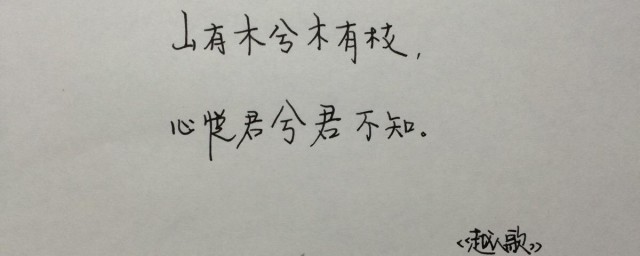 山有木兮木有枝，
心悦君兮君不知。
《越人歌》